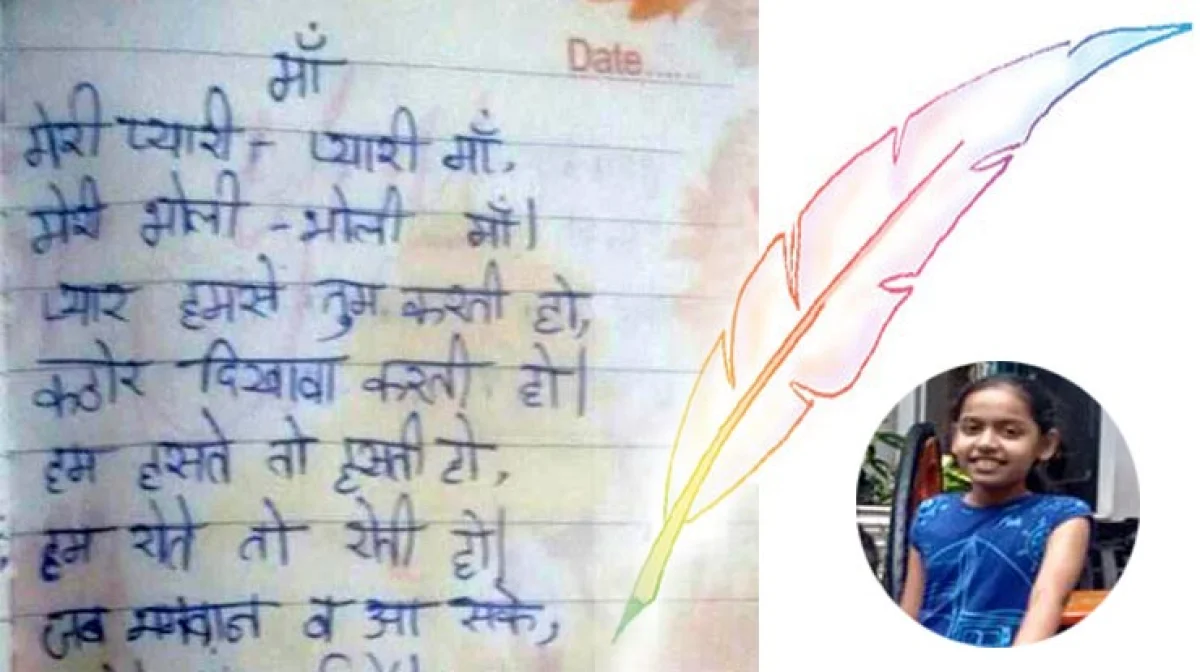 माँ
Date.....
मेरी प्यारी - प्यारी माँ,
मेरी भोली - भोली माँ।
प्यार हमसे तुम करती हो,
कठोर दिखावा करती हो।
हम हसते तो हसती हो,
हम रोते तो रोती हो।
जब भगवान व आ सके,